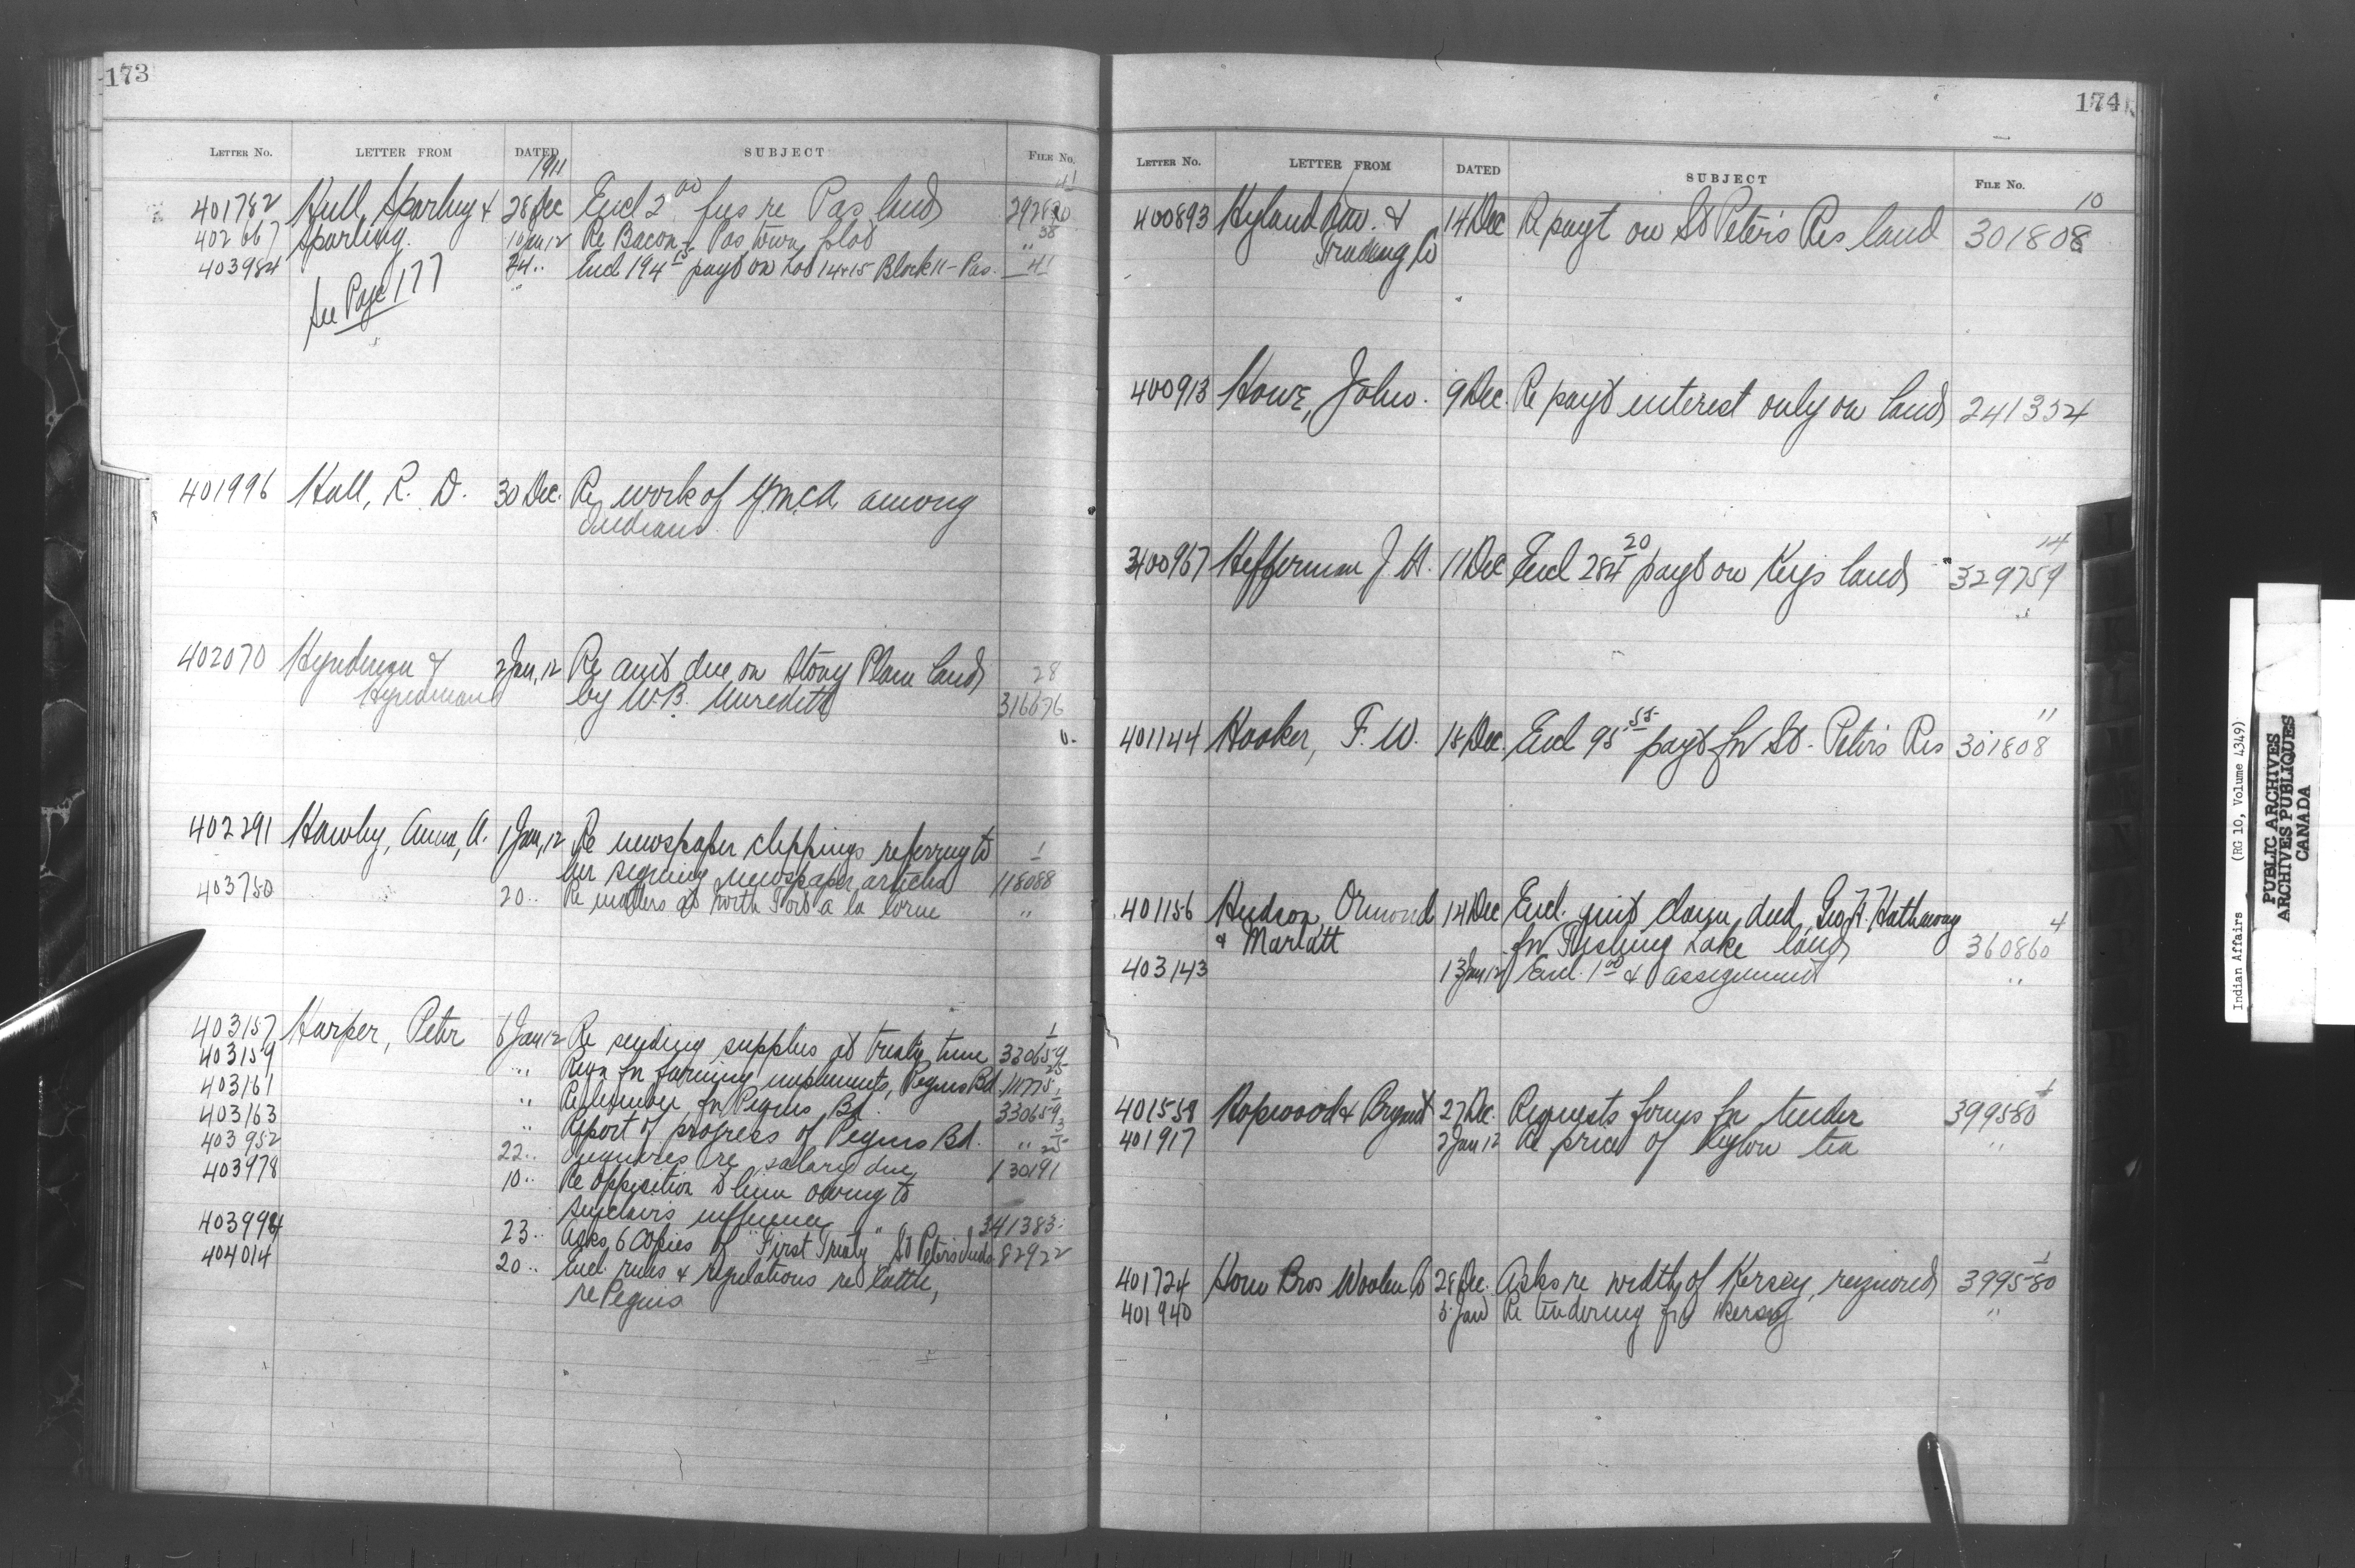 173
LETTER NO. LETTER FROM DATED SUBJECT FILE NO.
1911
41
401782 Hull, Sparling & 28 Dec Encl 2 00 fees re Pas land 292820
402667 Sparling. 10 Jan 12 Re Bacon - Pas town plot " 38
403984 24 " Encl 194 payt on Lot 14 & 15 Block 11 - Pas. " 41
See Page 177
401996 Hall, R. D. 30 Dec. Re work of Y.M.C.A. among
Indians.
402070 Hyndman & 2 Jan, 12 Re amt due on Stony Plain land 28
Hyndman by W.B. Meredith 316676
402291 Hawley, Anna, A. 1 Jan, 12 Re newspaper clippings referring to 1
her signing newspaper articles 118088
403750 20 " Re matters at North Fort a la Corne "
403157 Harper, Peter 6 Jan 12 Re sending supplies at treaty time 1 330659
403159 " Reqn for farming implements, Peguis Bd. 25 111775
403161 " Re lumber for Peguis Bd. 1 330659
403163 " Report of progress of Peguis Bd. " 3
403952 22 " Inquires re salary due 130191
403978 10 " Re opposition to him owing to
Sinclairs influence 341383
403994 23 " Asks 6 copies of "First Treaty" St Peter's Inds 82922
404014 20 " Encl. rules & regulations re cattle,
re Peguis
174
LETTER NO. LETTER FROM DATED SUBJECT FILE NO.
10
400893 Hyland Nav. & 14 Dec Re payt on St Peter's Res land 301808
Trading Co
400913 Howe, John. 9 Dec. Re payt interest only on land 241354
14
400967 Heffernan J. H. 11 Dec Encl 284 20 payt on Keys land 329759
11
401144 Hooker, F. W. 18 Dec. Encl 95 55 payt for St. Peter's Res 301808
401156 Hudson, Ormond 14 Dec Encl. quit claim deed, Geo. H. Hathaway 4
& Marlatt for Fishing Lake land 360860
403143 13 Jan 12 Encl. 1 00 & assignment "
1
401558 Hopwood & Bryant 27 Dec. Requests forms for tender 399580
401917 2 Jan 12 Re price of Ceylon tea "
1
401724 Horn Bros Woolen Co 28 Dec. Asks re width of Kersey required 399580
401940 5 Jan Re tendering for Kersey "
Indian Affairs (RG 10, Volume 4349)
PUBLIC ARCHIVES
ARCHIVES PUBLIQUES
CANADA